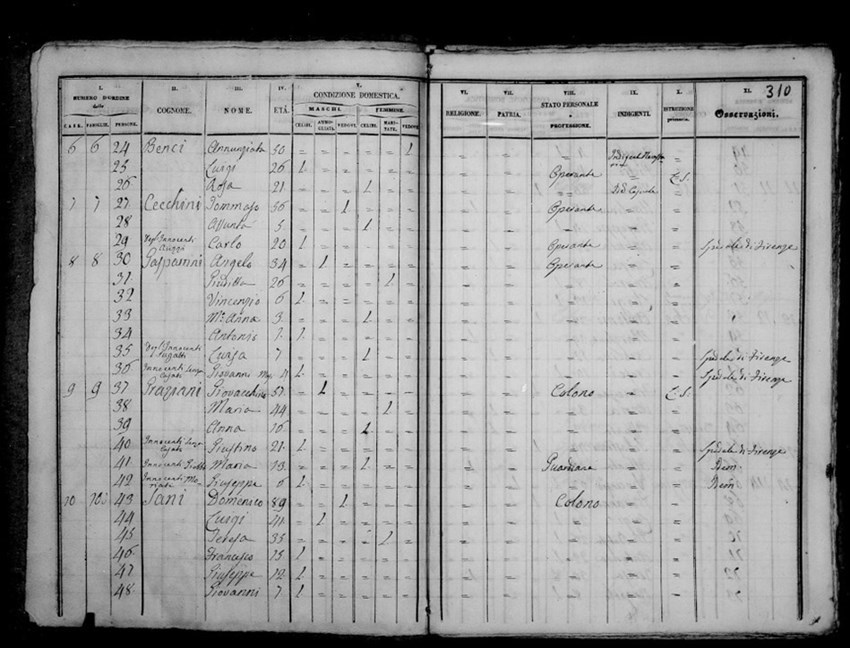 310
I. II. III. IV. V. VI. VII. VIII. IX. X. XI.
NUMERO D'ORDINE
delle
CASE. FAMIGLIE. PERSONE.
COGNOME. NOME. ETÁ.
CONDIZIONE DOMESTICA.
MASCHI. FEMMINE.
CELIBI. AMMOGLIATI. VEDOVI. CELIBI. MARITATE. VEDOVE.
RELIGIONE. PATRIA. STATO PERSONALE
o
PROFESSIONE.
INDIGENTI. ISTRUZIONE
primaria.
Osservazioni.
6 6 24 Benci Annunziata 50 = = = = = 1 = = = =
25 Luigi 26 1 = = = = = = = Operante = C.S.
26 Rosa 21 = = = 1 = = = = = =
7 7 27 Cecchini Tommaso 56 = = 1 = = = = = Operante = =
28 Assunta 5 = = = 1 = = = = = = =
29 Degl'Innocenti Carlo 20 1 = = = = = = = Operante = = Spedale di Firenze
8 8 30 Gasparrini Angelo 34 = 1 = = = = = = Operante = =
31 Giuditta 26 = = = = 1 = = = = = =
32 Vincenzio 6 1 = = = = = = = = = =
33 Mª Anna 3 = = = 1 = = = = = = =
34 Antonio 1 1 = = = = = = = = = =
35 Degl'Innocenti Luisa 7 = = = 1 = = = = = = = Spedale di Firenze
36 Innocenti Giovanni 1 = = = = = = = = = = Spedale di Firenze
9 9 37 Graziani Giovacchino 57 = 1 = = = = = = Colono = C.S.
38 Maria 44 = = = = 1 = = = = = =
39 Anna 16 = = = 1 = = = = = = =
40 Innocenti Giustino 21 1 = = = = = = = = = = Spedale di Firenze
41 Innocenti Maria 13 = = = 1 = = = = = = Idem
42 Innocenti Giuseppe 6 1 = = = = = = = = = = Idem
10 10 43 Sani Domenico 89 = = 1 = = = = = Colono = =
44 Luigi 41 = 1 = = = = = = = = =
45 Teresa 35 = = = = 1 = = = = = =
46 Francesco 15 1 = = = = = = = = = =
47 Giuseppe 12 1 = = = = = = = = = =
48 Giovanni 7 1 = = = = = = = = = =